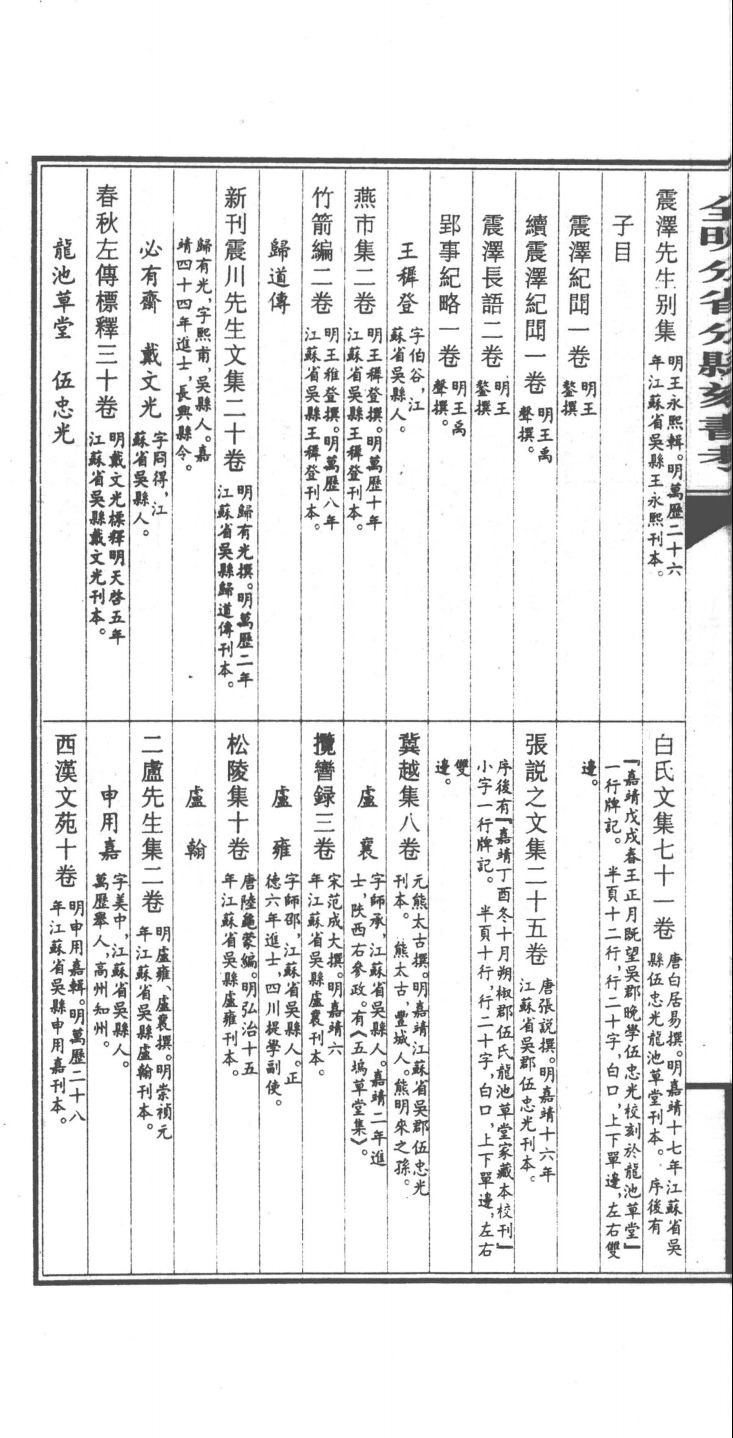 全明分省分縣刻書考
震澤先生别集 明王永熙輯。明萬歷二十六
年江蘇省吳縣王永熙刊本。
子目
震澤紀聞一卷 明王
鏊撰
續震澤紀聞一卷 明王禹
聲撰。
震澤長語二卷 明王
鏊撰
郢事紀略一卷 明王禹
聲撰。
王穉登 字伯谷,江
蘇省吳縣人。
燕市集二卷 明王穉登撰。明萬歷十年
江蘇省吳縣王穉登刊本。
竹箭編二卷 明王稚登撰。明萬歷八年
江蘇省吳縣王穉登刊本。
歸道傳
新刊震川先生文集二十卷 明歸有光撰。明萬歷二年
江蘇省吳縣歸道傳刊本。
歸有光,字熙甫,吳縣人。嘉
靖四十四年進士,長興縣令。
必有齋 戴文光 字冏得,江
蘇省吳縣人。
春秋左傳標釋三十卷 明戴文光標釋明天啓五年
江蘇省吳縣戴文光刊本。
龍池草堂 伍忠光
白氏文集七十一卷 唐白居易撰。明嘉靖十七年江蘇省吳
縣伍忠光龍池草堂刊本。 序後有
『嘉靖戊戌春王正月既望吳郡晚學伍忠光校刻於龍池草堂』
一行牌記。 半頁十二行,行二十字,白口,上下單邊,左右雙
邊。
張説之文集二十五卷 唐張説撰。明嘉靖十六年
江蘇省吳郡伍忠光刊本。
序後有『嘉靖丁酉冬十月朔椒郡伍氏龍池草堂家藏本校刊』
小字一行牌記。 半頁十行,行二十字,白口,上下單邊,左右
雙
邊。
冀越集八卷 元熊太古撰。明嘉靖江蘇省吳郡伍忠光
刊本。 熊太古,豐城人。熊明來之孫。
盧襄 字師承,江蘇省吳縣人。嘉靖二年進
士,陝西右參政。有《五塢草堂集》。
攬轡録三卷 宋范成大撰。明嘉靖六
年江蘇省吳縣盧襄刊本。
盧雍 字師邵,江蘇省吳縣人。正
德六年進士,四川提學副使。
松陵集十卷 唐陸龜蒙編。明弘治十五
年江蘇省吳縣盧雍刊本。
盧翰
二盧先生集二卷 明盧雍、盧襄撰。明崇禎元
年江蘇省吳縣盧翰刊本。
申用嘉 字美中,江蘇省吳縣人。
萬歷舉人,高州知州。
西漢文苑十卷 明申用嘉輯。明萬歷二十八
年江蘇省吳縣申用嘉刊本。